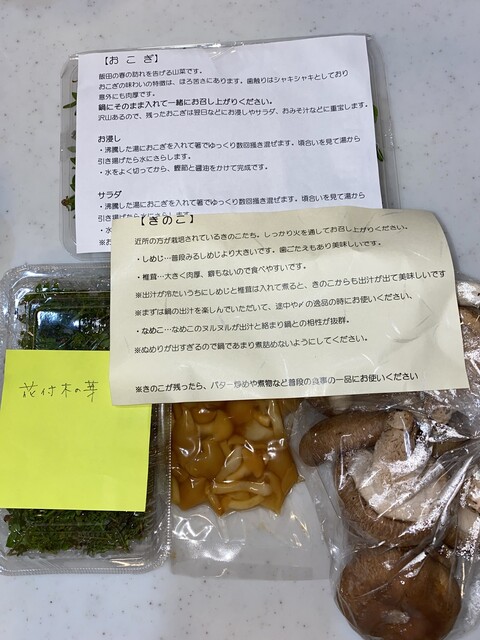 【おこぎ】
飯田の春の訪れを告げる山菜です。
おこぎの味わいの特徴は、ほろ苦さにあります。歯触りはシャキシャキとしており
意外にも肉厚です。
鍋にそのまま入れて一緒にお召し上がりください。
沢山あるので、残ったおこぎは翌日などにお浸しやサラダ、おみそ汁などに重宝します。
お浸し
・沸騰した湯におこぎを入れて箸でゆっくり数回掻き混ぜます。頃合いを見て湯から
引き揚げたら水にさらします。
・水をよく切ってから、鰹節と醤油をかけて完成です。
サラダ
・沸騰した湯におこぎを入れて箸でゆっくり数回掻き混ぜます。頃合いを見て湯から
引き揚げたら水にさらし
・水
※お
【きのこ】
近所の方が栽培されているきのこたち。しっかり火を通してお召し上がりください。
・しめじ…普段みるしめじより大きいです。歯ごたえもあり美味しいです。
・椎茸…大きく肉厚、癖もないので食べやすいです。
※出汁が冷たいうちにしめじと椎茸は入れて煮ると、きのこからも出汁が出て美味しいです
※まずは鍋の出汁を楽しんでいただいて、途中や〆の逸品の時にお使いください、
・なめこ…なめこのヌルヌルが出汁と絡まり鍋との相性が抜群。
※ぬめりが出すぎるので鍋であまり煮詰めないようにしてください。
※きのこが残ったら、バター炒めや煮物など普段の食事の一品にお使いください
花付木の芽